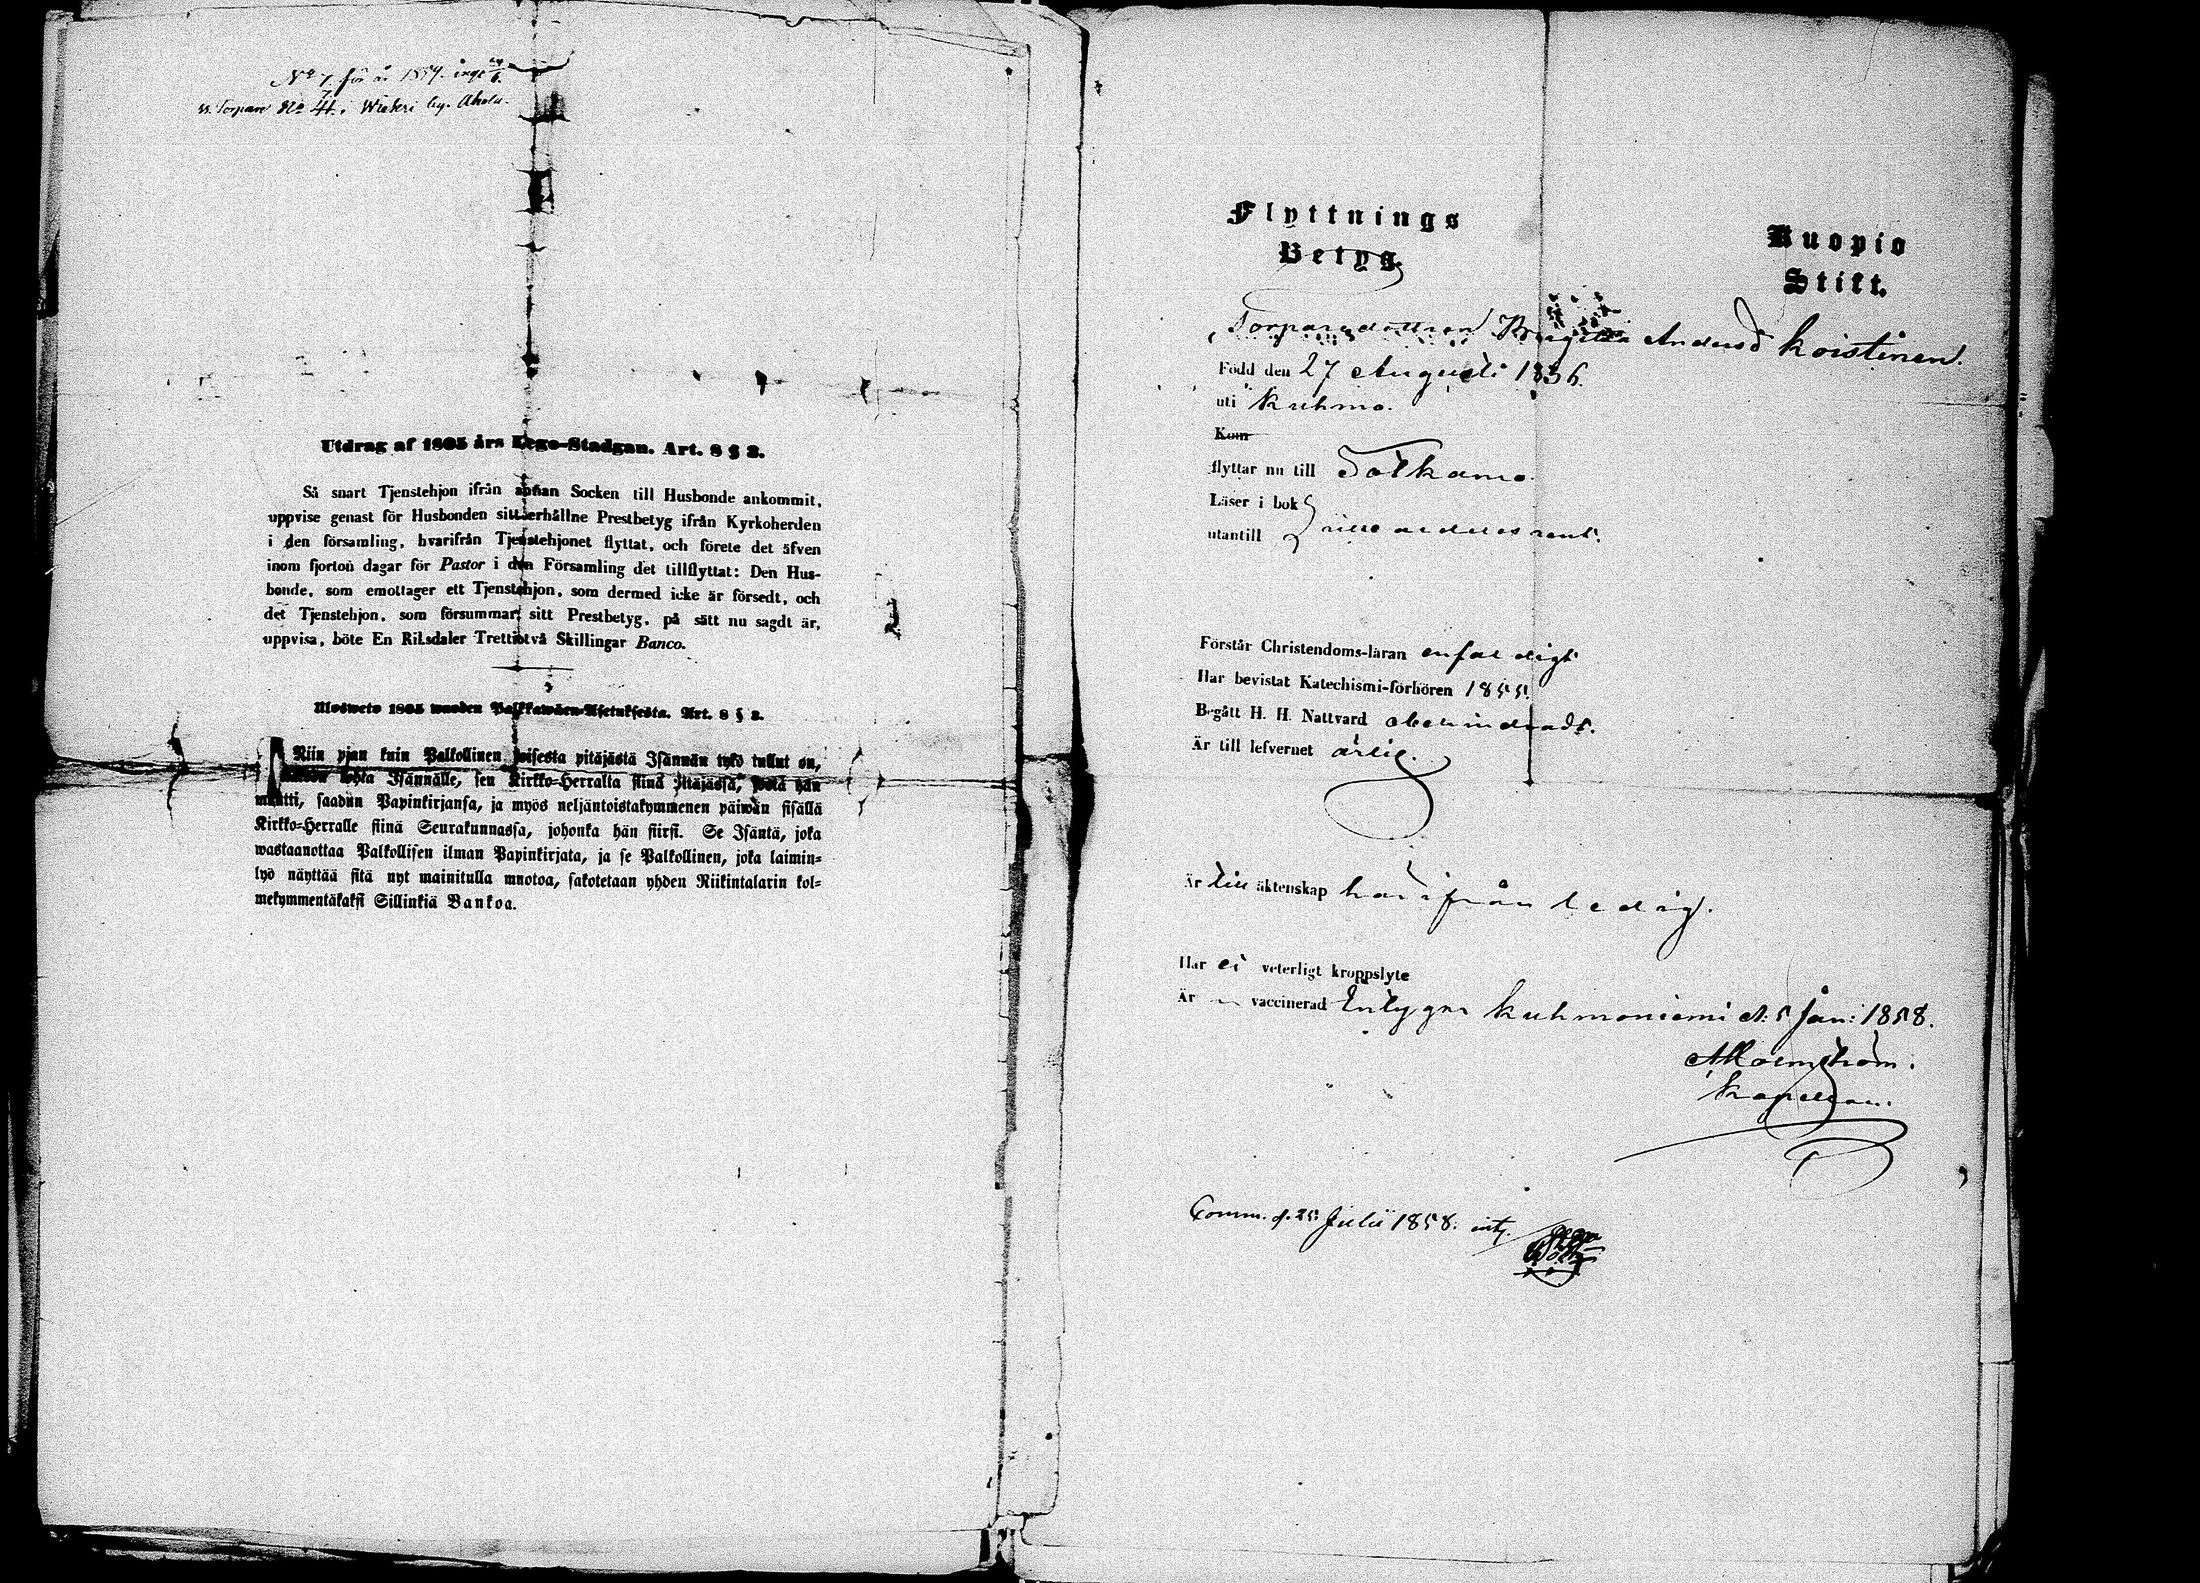 No 7 för år 1859. ing
Torpare No 41. Wieksi by. Ahola.
Utdrag af 1805 års Lego-Stadgan. Art. 8 § 3.
Så snart Tjenstehjon ifrån annan Socken till Husbonde ankommit,
uppvise genast för Husbonden sitt erhållne Prestbetyg ifrån Kyrkoherden
i den församling, hvarifrån Tjenstehjonet flyttat, och förete det äfven
inom fjorton dagar för Pastor i den Församling det tillflyttat: Den Hus-
bonde, som emottager ett Tjenstehjon, som dermed icke är försedt, och
det Tjenstehjon, som försummar sitt Prestbetyg, på sätt nu sagdt är,
uppvisa, böte En Riksdaler Trettiotvå Skillingar Banco.
Ulosweto 1805 wuoden Palkkawäen-Asetuksesta. Art. 8 § 3.
Niin pian kuin Palkollinen toisesta pitäjästä Isännän tykö tullut on,
kohta Isännälle, sen Kirkko-Herralta siinä pitäjässä, josta hän
muutti, saadun Papinkirjansa, ja myös neljäntoistakymmenen päiwän sisällä
Kirkko-Herralle siinä Seurakunnassa, johonka hän siirsi. Se Isäntä, joka
wastaanottaa Palkollisen ilman Papinkirjata, ja se Palkollinen, joka laimin-
lyö näyttää sitä nyt mainitulla muotoa, sakotetaan yhden Riikintalarin kol-
mekymmentäkaksi Sillinkiä Bankoa.
Flyttnings
Betyg.
Kuopio
Stift.
Torparedottren Brigitta Andersd Koistinen.
Född den 27 Augusti 1836.
uti Kuhmo.
Kom
flyttar nu till Sotkamo.
Läser i bok
utantill
Förstår Christendoms-läran enfaldigt
Har bevistat Katechismi-förhören 1855.
Begått H. H. Nattvard obehindradt.
Är till lefvernet ärlig.
Är till äktenskap härifrån ledig.
Har ei veterligt kroppslyte
Är vaccinerad Intygar Kuhmoniemi d. 5 Jan: 1858.
Malmström.
Kapellan.
Comm. d. 25 Julii 1858. int.